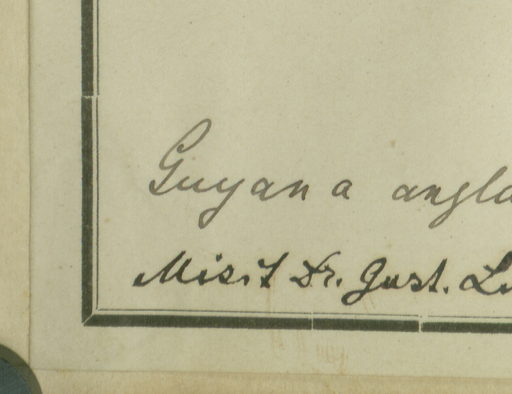 Guyana angla
Misit Dr. Gust.